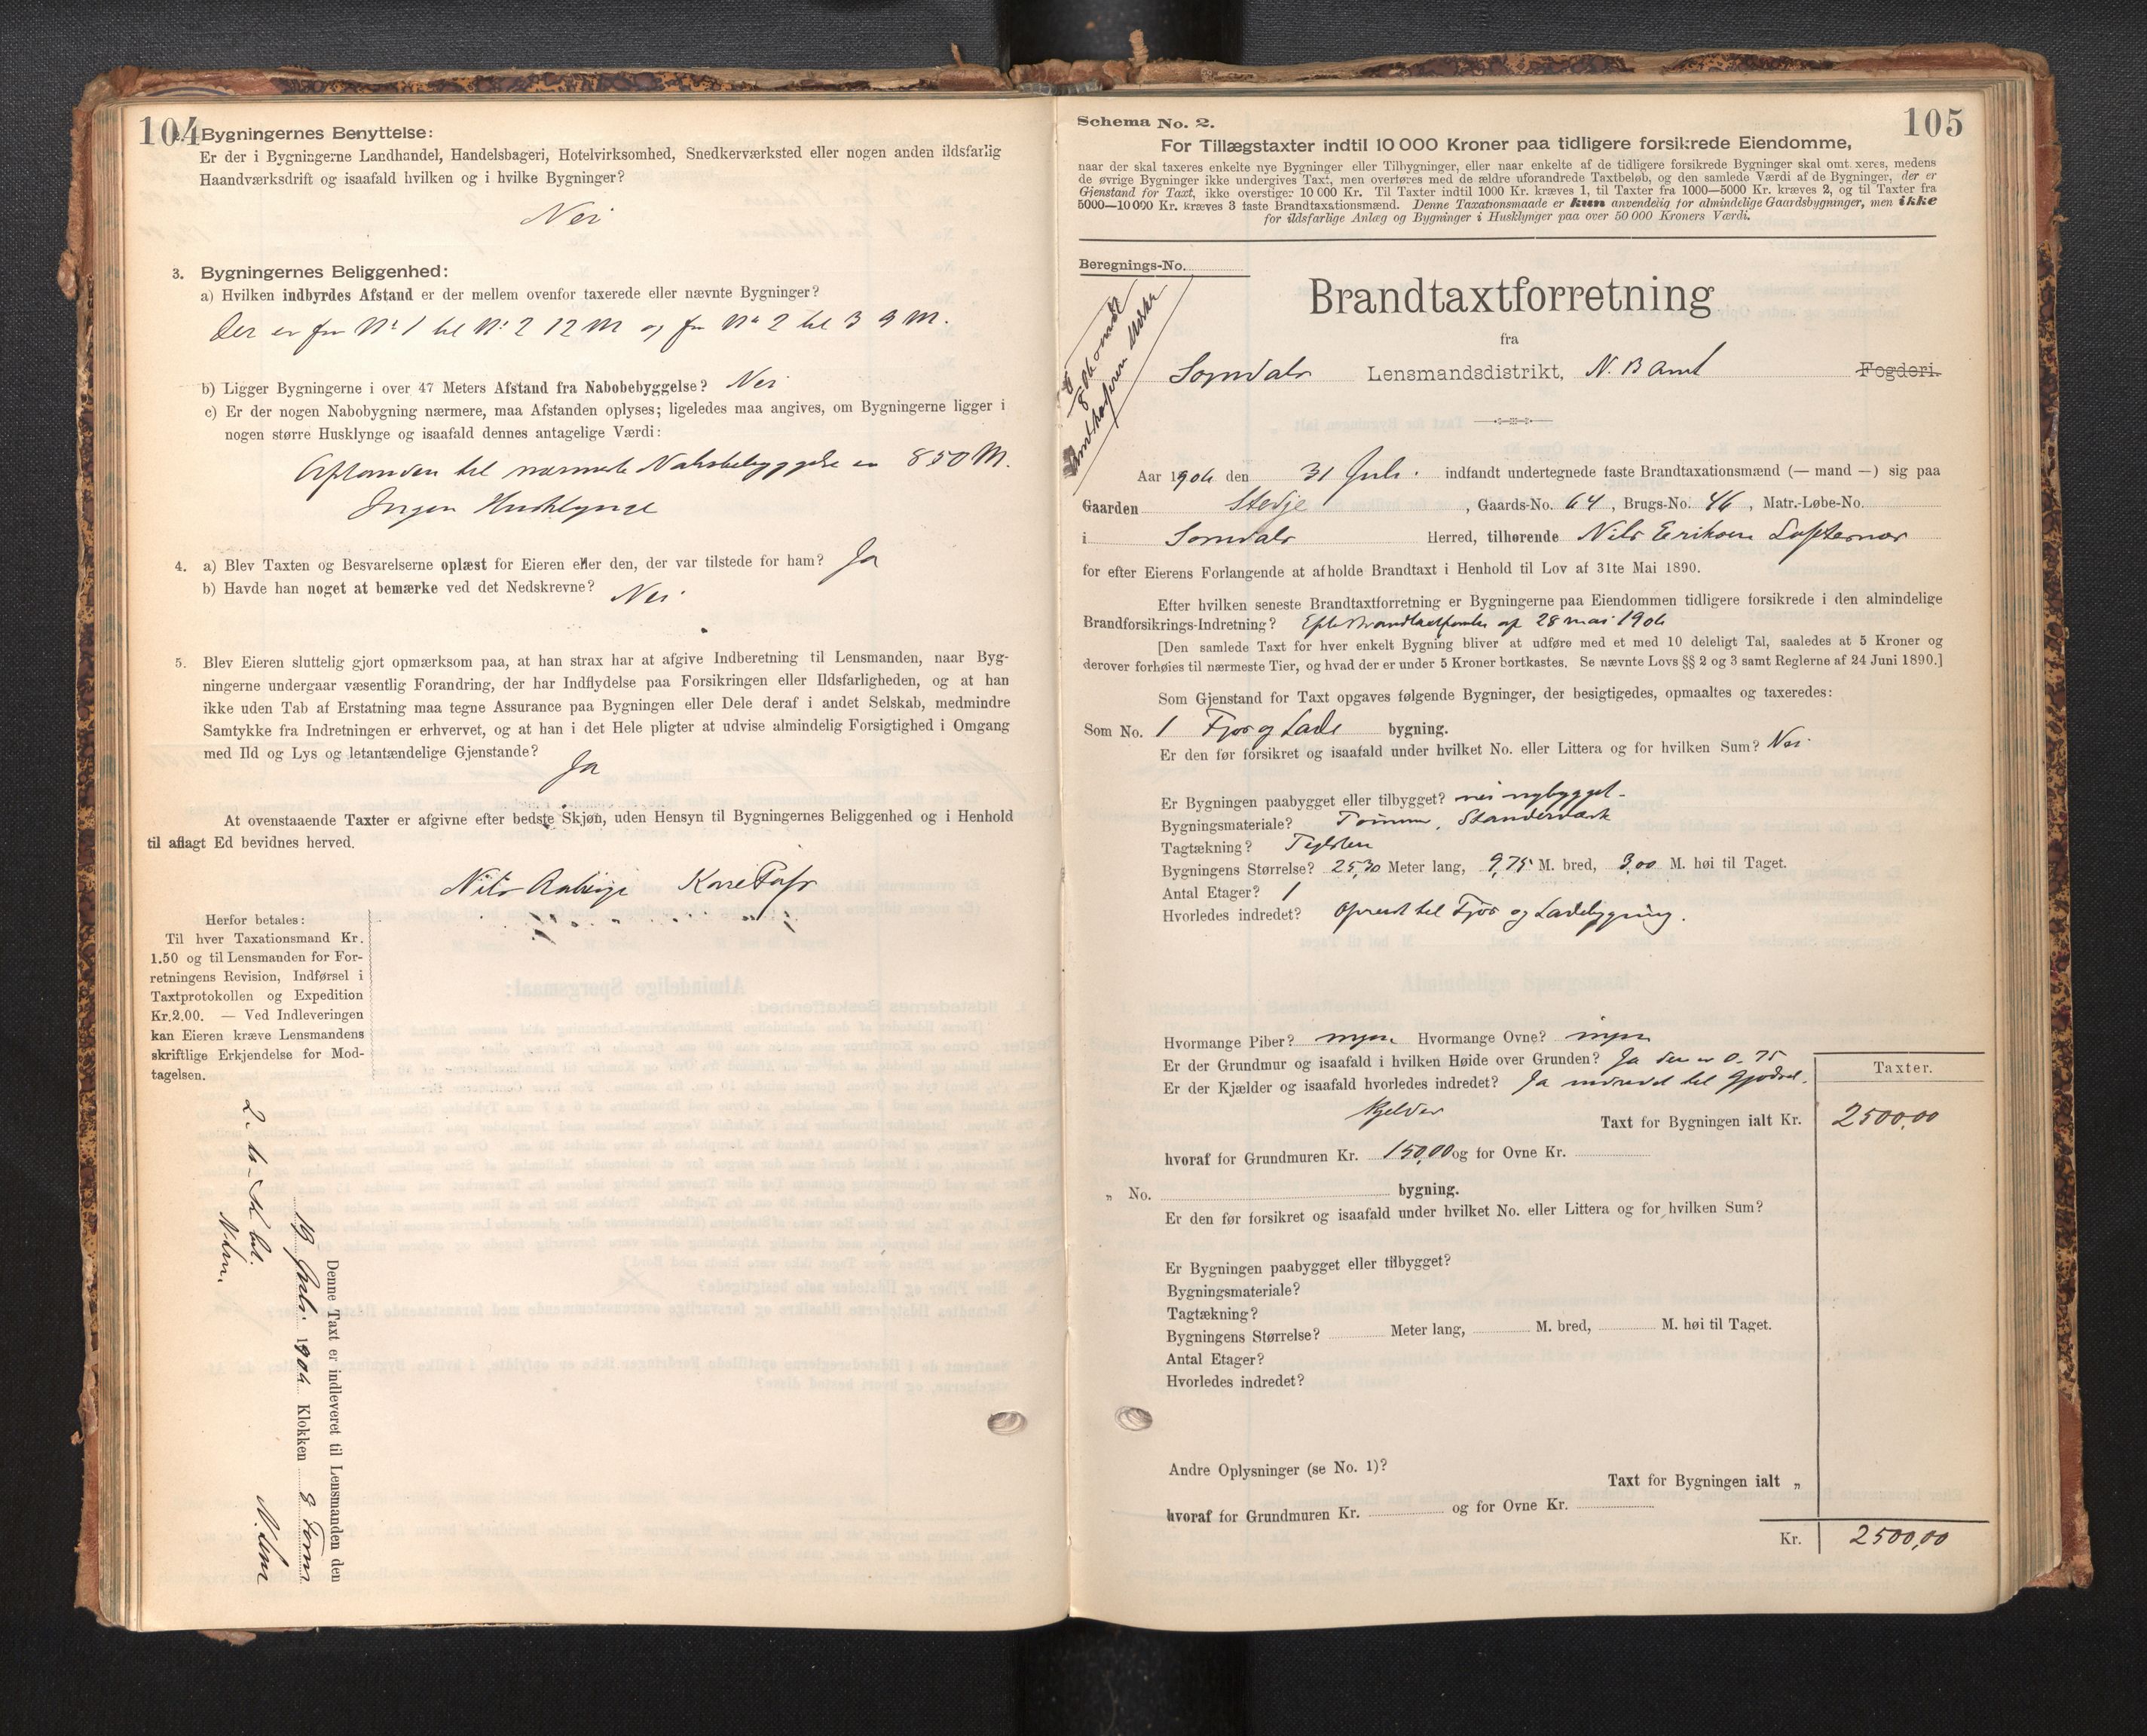 104
2. Bygningernes Benyttelse:
Er der i Bygningerne Landhandel, Handelsbageri, Hotelvirksomhed, Snedkerværksted eller nogen anden ildsfarlig
Haandværksdrift og isaafald hvilken og i hvilke Bygninger?
Nei
3. Bygningernes Beliggenhed:
a) Hvilken indbyrdes Afstand er der mellem ovenfor taxerede eller nævnte Bygninger?
Der er fra No 1 til No 2 12 M og fra No 2 til 3 9 M.
b) Ligger Bygningerne i over 47 Meters Afstand fra Nabobebyggelse? Nei
c) Er der nogen Nabobygning nærmere, maa Afstanden oplyses; ligeledes maa angives, om Bygningerne ligger i
nogen større Husklynge og isaafald dennes antagelige Værdi:
Afstanden til nærmeste Nabobebyggelse er 850 M.
Ingen Husklynge
4. a) Blev Taxten og Besvarelserne oplæst for Eieren eller den, der var tilstede for ham? Ja
b) Havde han noget at bemærke ved det Nedskrevne? Nei
5. Blev Eieren sluttelig gjort opmærksom paa, at han strax har at afgive Indberetning til Lensmanden, naar Byg-
ningerne undergaar væsentlig Forandring, der har Indflydelse paa Forsikringen eller Ildsfarligheden, og at han
ikke uden Tab af Erstatning maa tegne Assurance paa Bygningen eller Dele deraf i andet Selskab, medmindre
Samtykke fra Indretningen er erhvervet, og at han i det Hele pligter at udvise almindelig Forsigtighed i Omgang
med Ild og Lys og letantændelige Gjenstande?
Ja
At ovenstaaende Taxter er afgivne efter bedste Skjøn, uden Hensyn til Bygningernes Beliggenhed og i Henhold
til aflagt Ed bevidnes herved.
Nils
Herfor betales:
Til hver Taxationsmand Kr.
1.50 og til Lensmanden for For-
retningens Revision, Indførsel i
Taxtprotokollen og Expedition
Kr. 2.00. — Ved Indleveringen
kan Eieren kræve Lensmandens
skriftlige Erkjendelse for Mod-
tagelsen.
Denne Taxt er indleveret til Lensmanden den
19 Juli 1906 Klokken 8 Form.
105
Schema No. 2.
For Tillægstaxter indtil 10 000 Kroner paa tidligere forsikrede Eiendomme,
naar der skal taxeres enkelte nye Bygninger eller Tilbygninger, eller naar enkelte af de tidligere forsikrede Bygninger skal omt.xeres, medens
de øvrige Bygninger ikke undergives Taxt, men overføres med de ældre uforandrede Taxtbeløb, og den samlede Værdi af de Bygninger, der er
Gjenstand for Taxt, ikke overstiger 10 000 Kr. Til Taxter indtil 1000 Kr. kræves 1, til Taxter fra 1000—5000 Kr. kræves 2, og til Taxter fra
5000—10 000 Kr. kræves 3 faste Brandtaxationsmænd. Denne Taxationsmaade er kun anvendelig for almindelige Gaardsbygninger, men ikke
for ildsfarlige Anlæg og Bygninger i Husklynger paa over 50 000 Kroners Værdi.
Beregnings-No.
Brandtaxtforretning
fra
Sogndals Lensmandsdistrikt, N. B Amt Fogderi.
Aar 1906 den 31 Juli indfandt undertegnede faste Brandtaxationsmænd (— mand —) sig paa
Gaarden Stedje, Gaards-No. 64, Brugs-No. 46, Matr.-Løbe-No.
i Sogndals Herred, tilhørende Nils Eriksen Loftesnes
for efter Eierens Forlangende at afholde Brandtaxt i Henhold til Lov af 31te Mai 1890.
Efter hvilken seneste Brandtaxtforretning er Bygningerne paa Eiendommen tidligere forsikrede i den almindelige
Brandforsikrings-Indretning? Efter Brandtaxtforretn af 28 mai 1906
[Den samlede Taxt for hver enkelt Bygning bliver at udføre med et med 10 deleligt Tal, saaledes at 5 Kroner og
derover forhøies til nærmeste Tier, og hvad der er under 5 Kroner bortkastes. Se nævnte Lovs §§ 2 og 3 samt Reglerne af 24 Juni 1890.]
Som Gjenstand for Taxt opgaves følgende Bygninger, der besigtigedes, opmaaltes og taxeredes:
Som No. 1 Fjøs og Lade bygning.
Er den før forsikret og isaafald under hvilket No. eller Littera og for hvilken Sum? Nei
Er Bygningen paabygget eller tilbygget? nei nybygget.
Bygningsmateriale? Tømmer, Standerværk
Tagtækning? Teglsten
Bygningens Størrelse? 25,30 Meter lang, 9,75 M. bred, 3,00 M. høi til Taget.
Antal Etager? 1
Hvorledes indredet? Indredet til Fjøs og Ladebygning.
Hvormange Piber? ingen Hvormange Ovne? ingen
Er der Grundmur og isaafald i hvilken Høide over Grunden? Ja den er 0,75
Er der Kjælder og isaafald hvorledes indredet? Ja indredet til Gjødsel-
kjelder
Taxter.
Taxt for Bygningen ialt Kr. 2500,00
hvoraf for Grundmuren Kr. 150,00 og for Ovne Kr.
„ No. bygning.
Er den før forsikret og isaafald under hvilket No. eller Littera og for hvilken Sum?
Er Bygningen paabygget eller tilbygget?
Bygningsmateriale?
Tagtækning?
Bygningens Størrelse? Meter lang, M. bred, M. høi til Taget.
Antal Etager?
Hvorledes indredet?
Andre Oplysninger (se No. 1)?
Taxt for Bygningen ialt „
hvoraf for Grundmuren Kr. og for Ovne Kr.
Kr. 2500,00